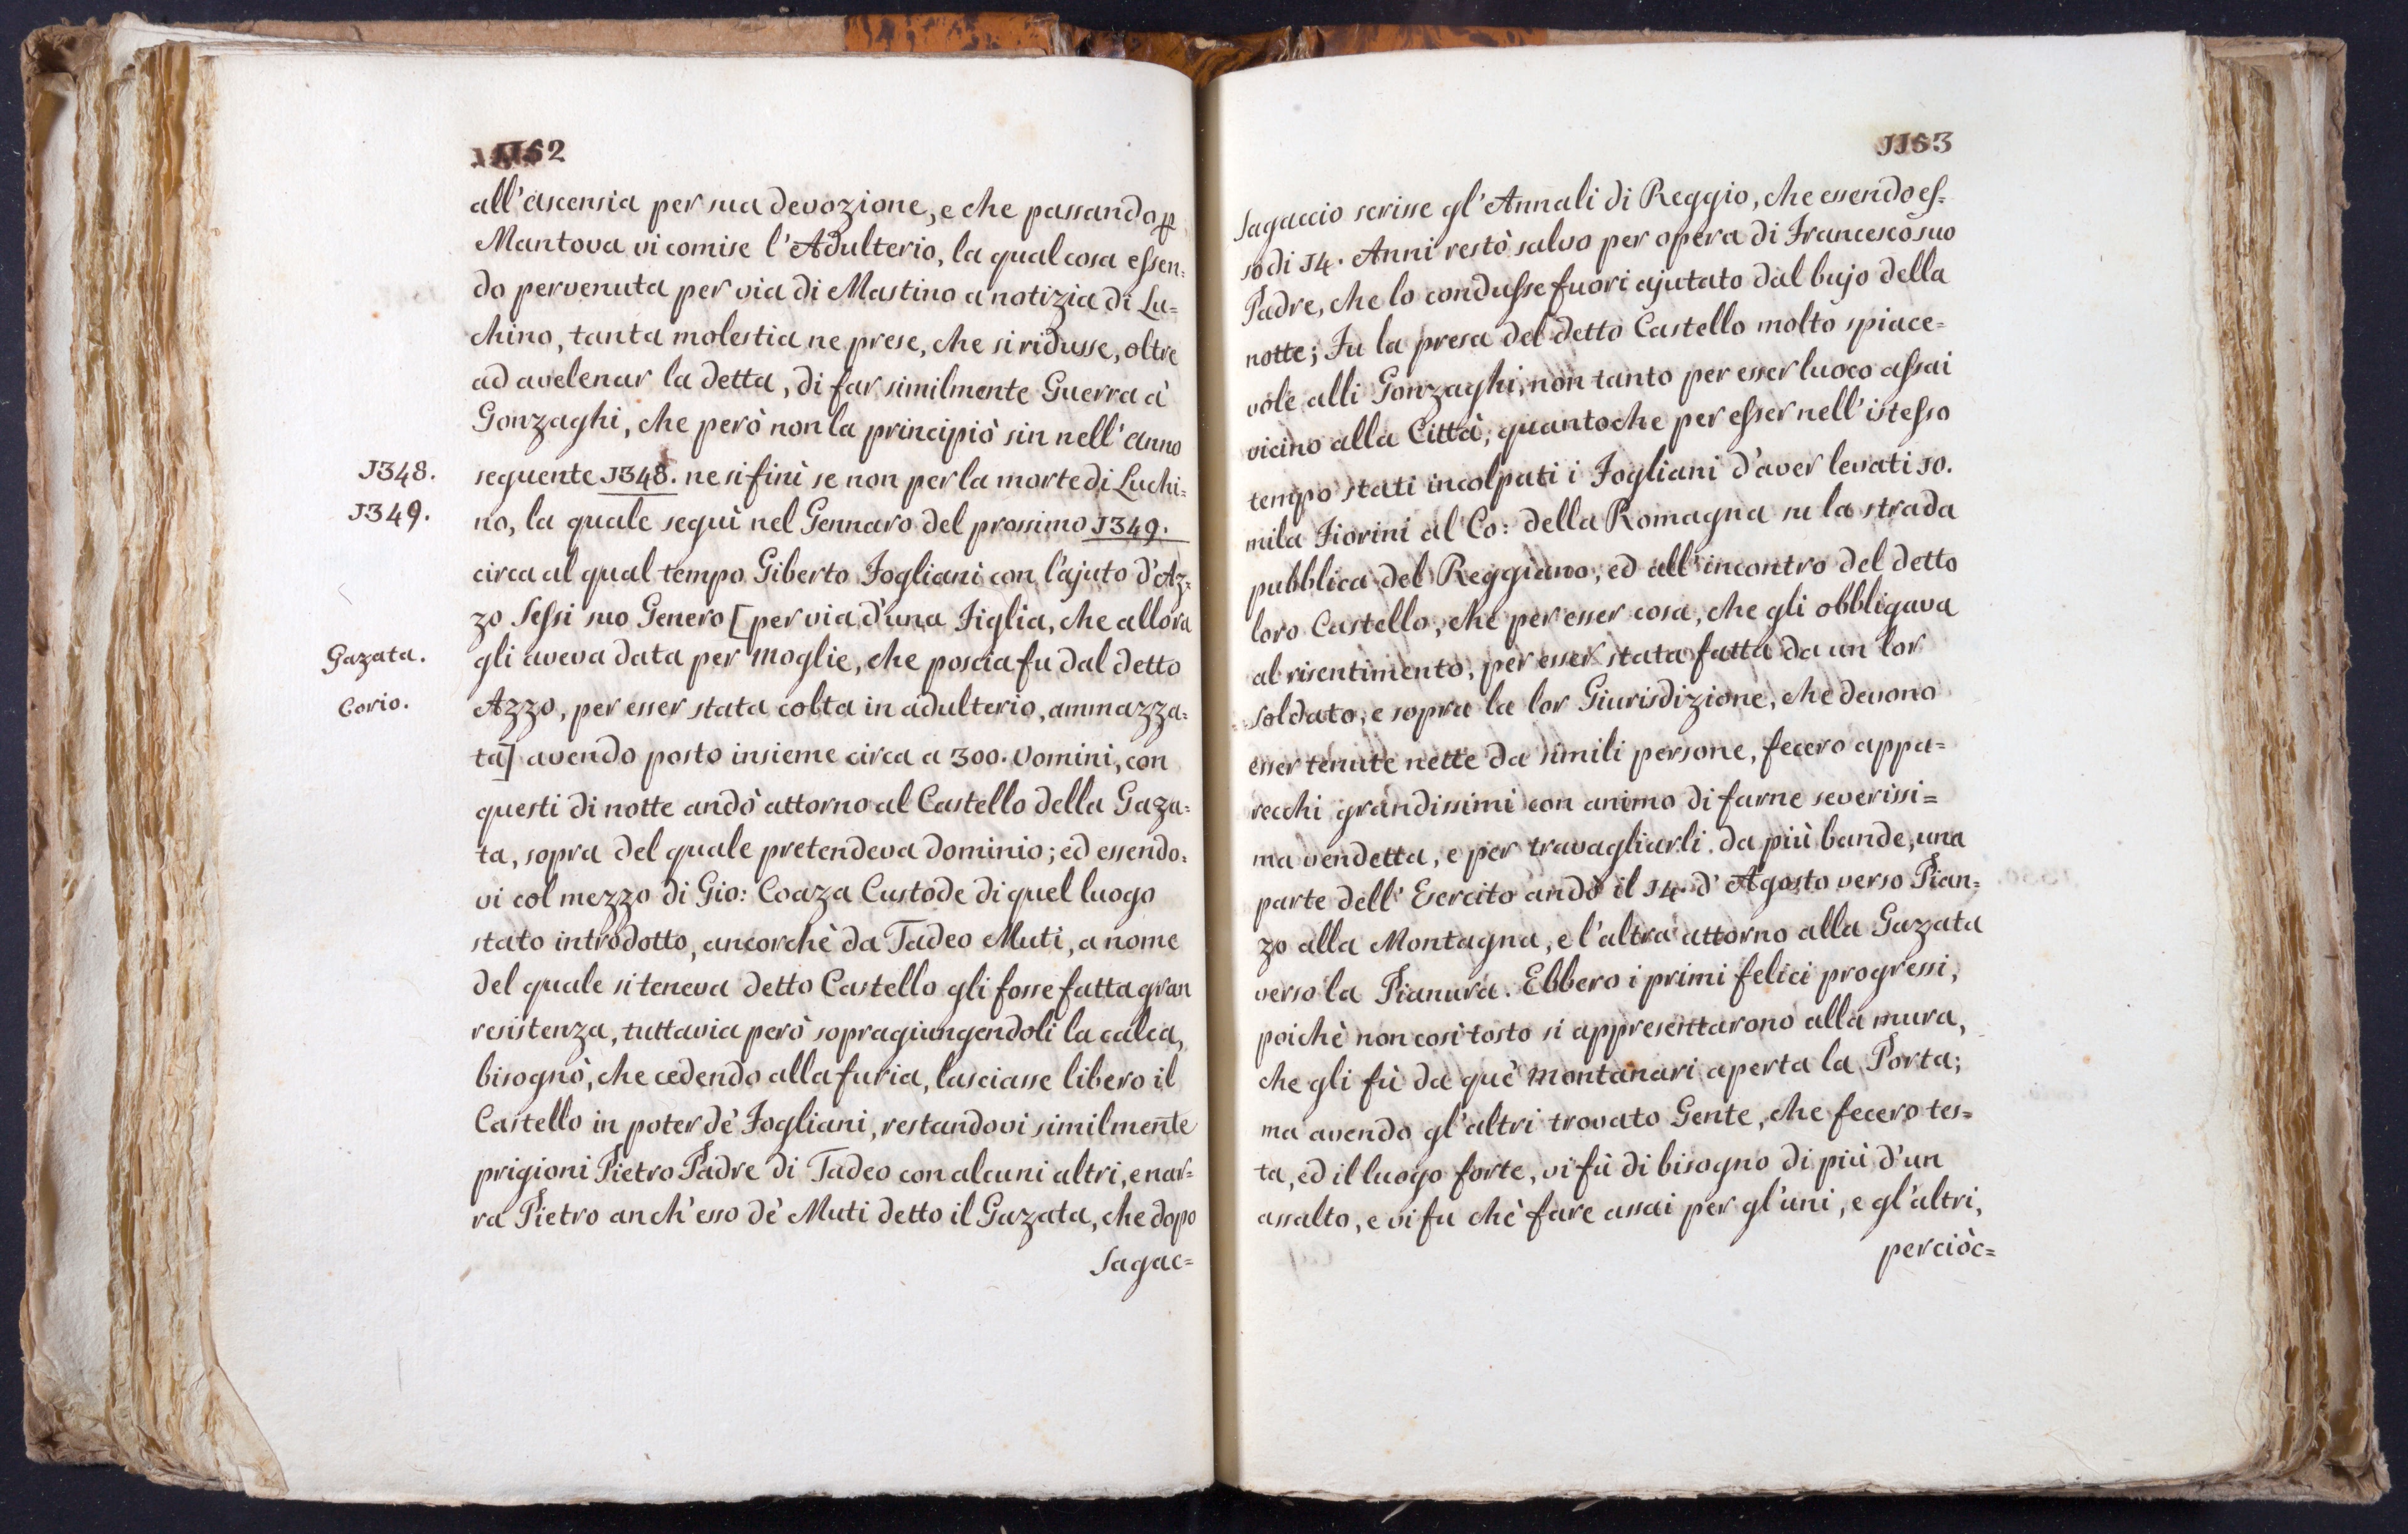 1162
all'ascensia per sua devozione, e che passando p
Mantova vi comise l'Adulterio, la qual cosa essen=
do pervenuta per via di Mastino a notizia di Lu=
chino, tanta molestia ne prese, che si ridusse, oltre
ad avelenar la detta, di far similmente Guerra à
Gonzaghi, che però non la principiò sin nell'anno
1348.
seguente 1348. ne si finì se non per la morte di Luchi=
1349.
no, la quale seguì nel Gennaro del prossimo 1349.
circa al qual tempo Giberto Fogliani con l'ajuto d'Az=
zo Sessi suo Genero [per via d'una Figlia, che allora
Gazata.
gli aveva data per Moglie, che poscia fu dal detto
Corio.
Azzo, per esser stata colta in adulterio, ammazza=
ta] avendo posto insieme circa a 300. Uomini, con
questi di notte andò attorno al Castello della Gaza=
ta, sopra del quale pretendeva dominio; ed essendo=
vi col mezzo di Gio: Coaza Custode di quel luogo
stato introdotto, ancorchè da Tadeo Muti, a nome
del quale si teneva detto Castello gli fosse fatta gran
resistenza, tuttavia però sopragiungendoli la calca,
bisognò, che cedendo alla furia, lasciasse libero il
Castello in poter dè Fogliani, restandovi similmente
prigioni Pietro Padre di Tadeo con alcuni altri, e nar=
ra Pietro anch'esso dè Muti detto il Gazata, che dopo
Sagac=
1163
Sagaccio scrisse gl'Annali di Reggio, che essendo es=
so di 14. Anni restò salvo per opera di Francesco suo
Padre, che lo condusse fuori ajutato dal bujo della
notte; Fu la presa del detto Castello molto spiace=
vole alli Gonzaghi, non tanto per esser luoco assai
vicino alla Città, quantoche per esser nell'istesso
tempo stati incolpati i Fogliani d'aver levati 10.
mila Fiorini al Co: della Romagna su la strada
pubblica del Reggiano, ed all'incontro del detto
loro Castello, che per esser cosa, che gli obbligava
al risentimento, per esser stata fatta da un lor
soldato, e sopra la lor Giurisdizione, che devono
esser tenute nette da simili persone, fecero appa=
recchi grandissimi con animo di farne severissi=
ma vendetta, e per travagliarli da più bande, una
parte dell'Esercito andò il 14. d'Agosto verso Pian=
zo alla Montagna, e l'altra attorno alla Gazata
verso la Pianura. Ebbero i primi felici progressi,
poichè non così tosto si appresentarono alla mura,
che gli fù da què Montanari aperta la Porta;
ma avendo gl'altri trovato Gente, che fecero tes=
ta, ed il luogo forte, vi fù di bisogno di più d'un
assalto, e vi fu chè fare assai per gl'uni, e gl'altri,
perciòc=